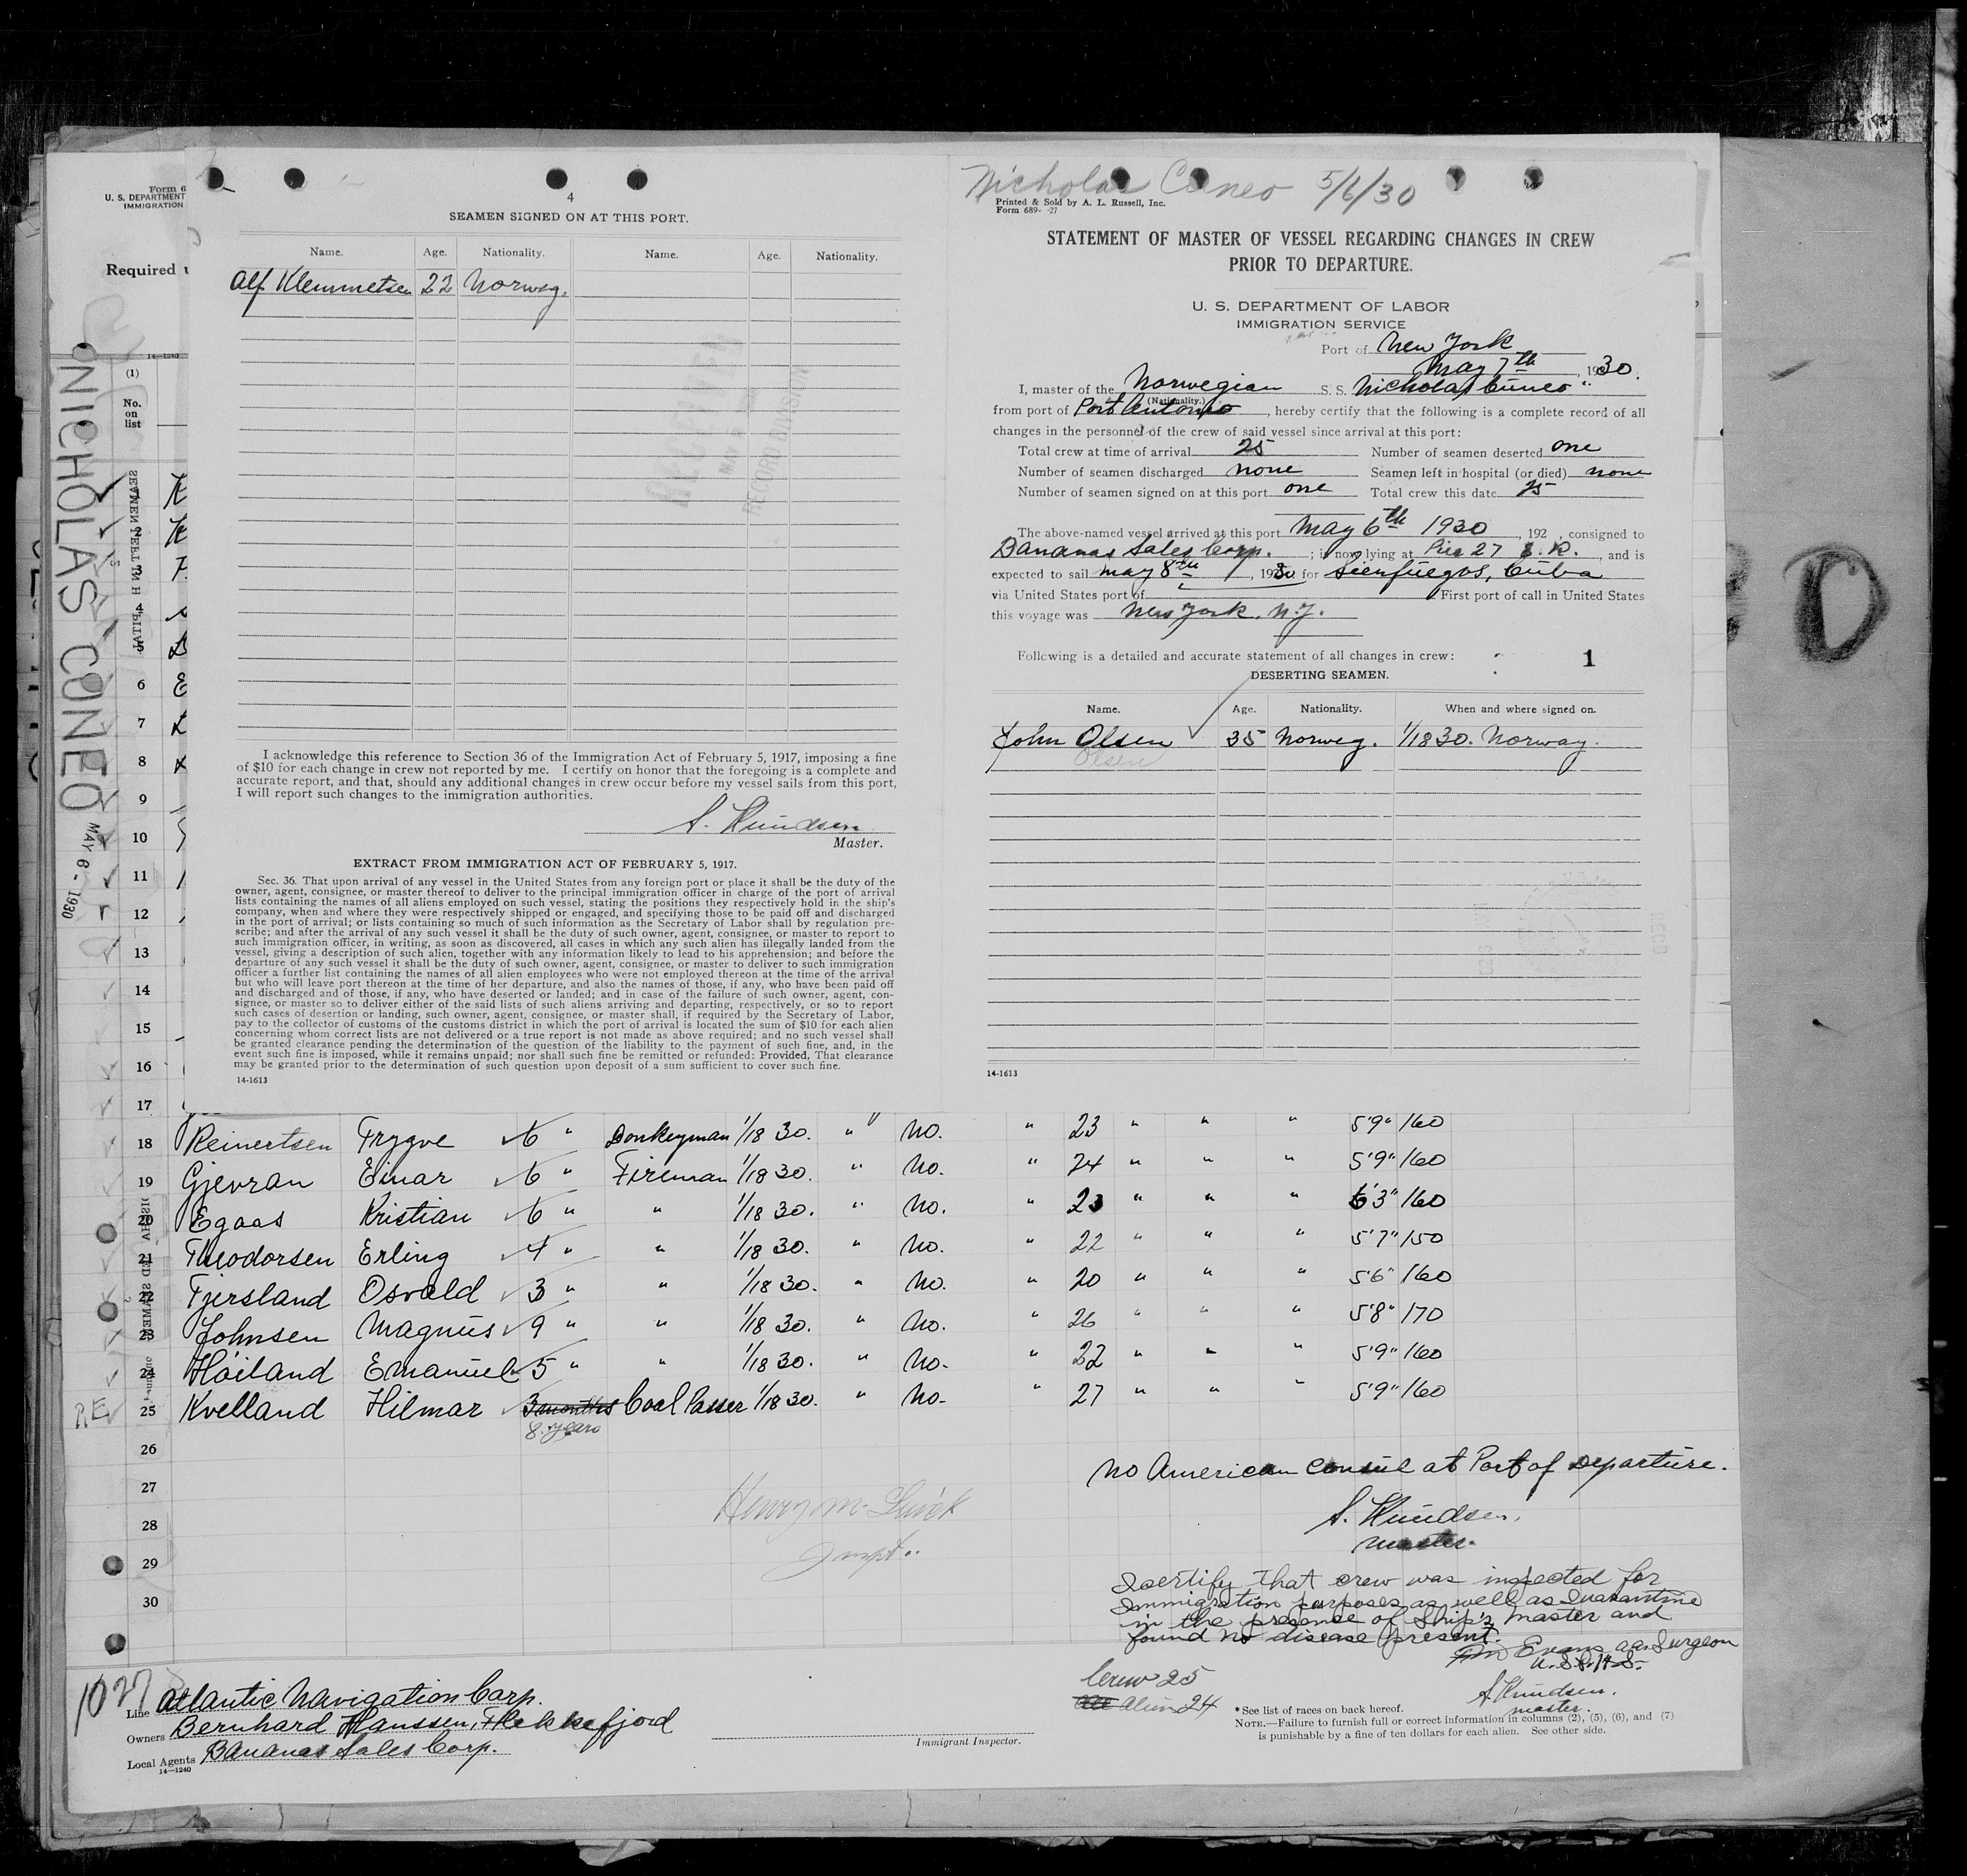 Form 6
U. S. DEPARTMENT
IMMIGRATION
Required
14—1240
(1)
No.
on
list
NICHOLAS CUNEO MAY 6 - 1930
4
SEAMEN SIGNED ON AT THIS PORT.
Name. Age. Nationality. Name. Age. Nationality.
Alf Klemmetsen 22 Norweg.
RECEIVED
MAY
RECORD DIVISION
I acknowledge this reference to Section 36 of the Immigration Act of February 5, 1917, imposing a fine
of $10 for each change in crew not reported by me. I certify on honor that the foregoing is a complete and
accurate report, and that, should any additional changes in crew occur before my vessel sails from this port,
I will report such changes to the immigration authorities.
S. Knudsen
Master.
EXTRACT FROM IMMIGRATION ACT OF FEBRUARY 5, 1917.
Sec. 36. That upon arrival of any vessel in the United States from any foreign port or place it shall be the duty of the
owner, agent, consignee, or master thereof to deliver to the principal immigration officer in charge of the port of arrival
lists containing the names of all aliens employed on such vessel, stating the positions they respectively hold in the ship's
company, when and where they were respectively shipped or engaged, and specifying those to be paid off and discharged
in the port of arrival; or lists containing so much of such information as the Secretary of Labor shall by regulation pre-
scribe; and after the arrival of any such vessel it shall be the duty of such owner, agent, consignee, or master to report to
such immigration officer, in writing, as soon as discovered, all cases in which any such alien has illegally landed from the
vessel, giving a description of such alien, together with any information likely to lead to his apprehension; and before the
departure of any such vessel it shall be the duty of such owner, agent, consignee, or master to deliver to such immigration
officer a further list containing the names of all alien employees who were not employed thereon at the time of the arrival
but who will leave port thereon at the time of her departure, and also the names of those, if any, who have been paid off
and discharged and of those, if any, who have deserted or landed; and in case of the failure of such owner, agent, con-
signee, or master so to deliver either of the said lists of such aliens arriving and departing, respectively, or so to report
such cases of desertion or landing, such owner, agent, consignee, or master shall, if required by the Secretary of Labor,
pay to the collector of customs of the customs district in which the port of arrival is located the sum of $10 for each alien
concerning whom correct lists are not delivered or a true report is not made as above required; and no such vessel shall
be granted clearance pending the determination of the question of the liability to the payment of such fine, and, in the
event such fine is imposed, while it remains unpaid; nor shall such fine be remitted or refunded: Provided, That clearance
may be granted prior to the determination of such question upon deposit of a sum sufficient to cover such fine.
14-1613
Nicholas Cuneo 5/6/30
Printed & Sold by A. L. Russell, Inc.
Form 689- -27
STATEMENT OF MASTER OF VESSEL REGARDING CHANGES IN CREW
PRIOR TO DEPARTURE.
U. S. DEPARTMENT OF LABOR
IMMIGRATION SERVICE
Port of New York
May 7th, 1930.
I, master of the Norwegian S. S. Nicholas Cuneo"
(Nationality.)
from port of Port Antonio, hereby certify that the following is a complete record of all
changes in the personnel of the crew of said vessel since arrival at this port:
Total crew at time of arrival 25 Number of seamen deserted one
Number of seamen discharged none Seamen left in hospital (or died) none
Number of seamen signed on at this port one Total crew this date 25
The above-named vessel arrived at this port May 6th 1930, 192 , consigned to
Bananas Sales Corp. ; is now lying at Pier 27 E. R. , and is
expected to sail May 8th, 1930 for Sienfuegos, Cuba
via United States port of First port of call in United States
this voyage was New York, N.Y.
Following is a detailed and accurate statement of all changes in crew:
1
DESERTING SEAMEN.
Name. Age. Nationality. When and where signed on.
John Olsen 35 Norweg. 1/18 30. Norway.
Olsen
14-1613
1
2
3
4
5
6
7
8
9
10
11
12
13
14
15
16
17
18 Reinertsen Trygve 6 " Donkeyman 1/18 30. " No. " 23 " " " 5'9" 160
19 Gjevran Einar 6 " Fireman 1/18 30. " No. " 24 " " " 5'9" 160
20 Egaas Kristian 6 " " 1/18 30. " No. " 23 " " " 6'3" 160
21 Theodorsen Erling 4 " " 1/18 30. " No. " 22 " " " 5'7" 150
22 Tjersland Osvald 3 " " 1/18 30. " No. " 20 " " " 5'6" 160
23 Johnsen Magnus 9 " " 1/18 30. " No. " 26 " " " 5'8" 170
24 Høiland Emanuel 5 " " 1/18 30. " No. " 22 " " " 5'9" 160
RE 25 Kvelland Hilmar 3 months Coal Passer 1/18 30. " No. " 27 " " " 5'9" 160
8 years
26
27
28
29
30
No American Consul at Port of Departure.
S. Knudsen.
Master.
Henry M.
Inspt.
I certify that crew was inspected for
Immigration purposes as well as Quarantine
in the presence of Ship's Master and
found no disease present.
Evans aa Surgeon
U.S.P.H.S.
S Knudsen.
master.
Crew 25
Alien 24
1027
Line Atlantic Navigation Corp.
Owners Bernhard Hanssen, Flekkefjord
Local Agents Bananas Sales Corp.
14—1240
Immigrant Inspector.
*See list of races on back hereof.
NOTE.—Failure to furnish full or correct information in columns (2), (5), (6), and (7)
is punishable by a fine of ten dollars for each alien. See other side.